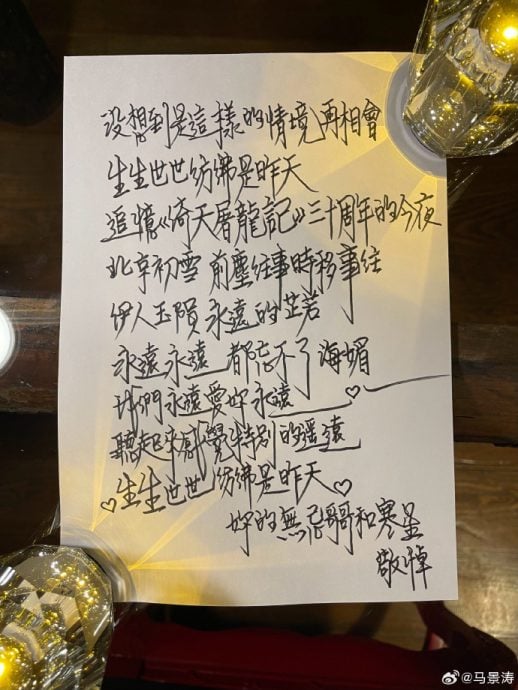 沒想到是這樣的情境再相會
生生世世彷彿是昨天
追憶《倚天屠龍記》三十周年的今夜
北京初雪 前塵往事時移事往
伊人玉隕 永遠的芷若
永遠永遠 都忘不了 海媚
我們永遠愛妳永遠
聽起來感覺特別的遙遠
生生世世彷彿是昨天
妳的無忌哥哥和寒星
敬悼
@马景涛